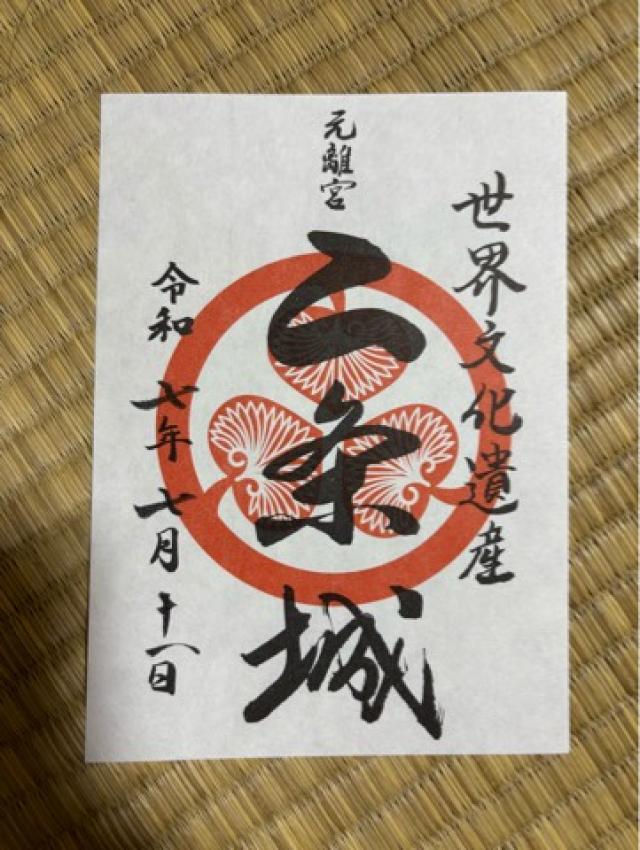 世界文化遺産
元離宮
二条城
令和七年七月十一日